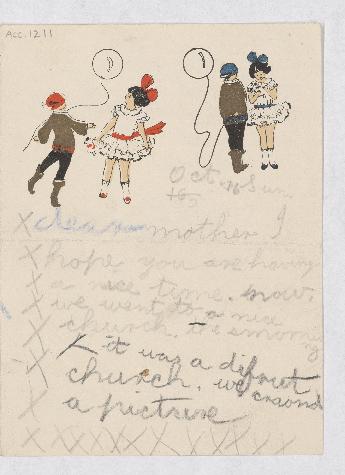 Acc. 1211
Oct. 16 Sun
X dear mother I
X hope you are having
X a nice time. now.
X we went to a nice
X church. this morning
X it was a difrent
X church. we craond
X a picture
X X X X X X X X X X X